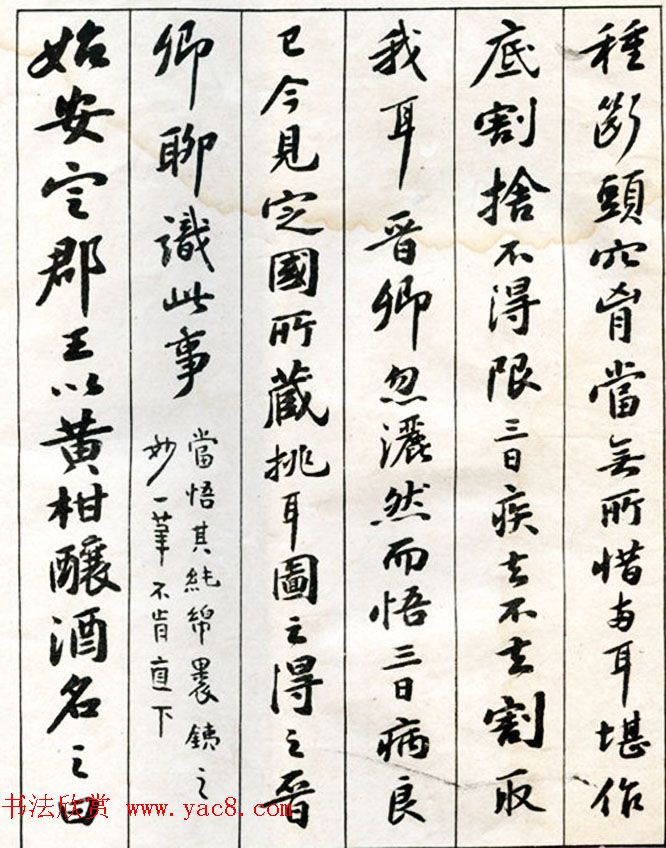 種斷頭穴胷當無所惜兩耳堪作
底割捨不得限三日疾去不去割取
我耳晉卿忽灑然而悟三日病良
已今見定國所藏挑耳圖云得之晉
卿聊識此事
當悟其純綿裹鐵之
妙一筆不肯直下
始安定郡王以黃柑釀酒名之曰
书法欣赏 www.yac8.com